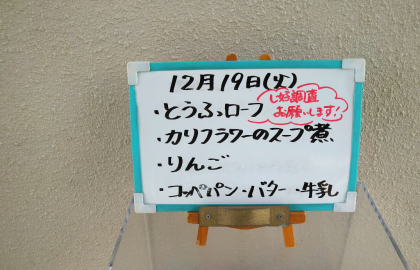 12月19日(火)
し好調査
お願いします!
・とうふローフ
・カリフラワーのスープ煮
・りんご
・コッペパン・バター・牛乳